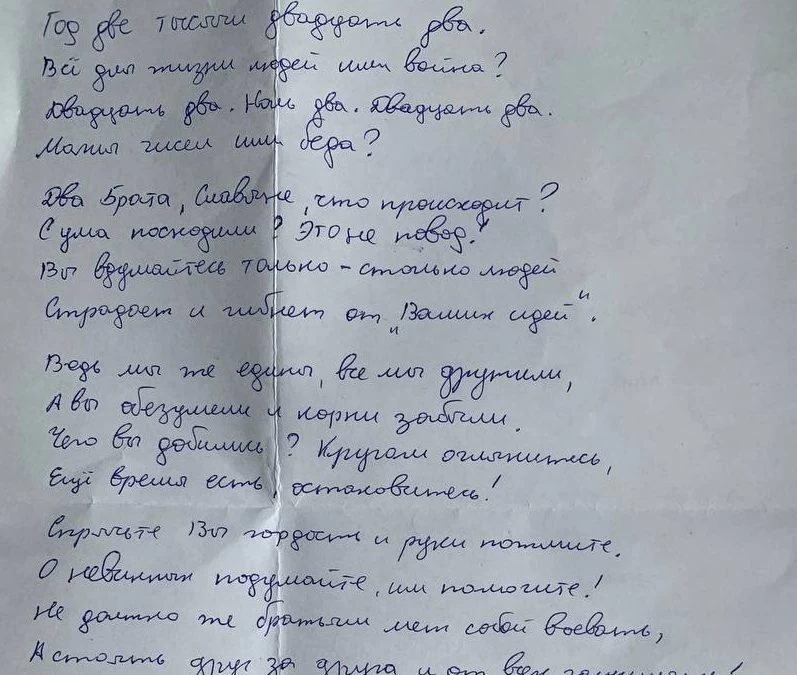 Год две тысячи двадцать два.
Всё для жизни людей или война?
Двадцать два. Ноль два. Двадцать два.
Магия чисел или беда?
Два Брата, Славяне, что происходит?
С ума посходили? Это не повод!
Вы вдумайтесь только - столько людей
Страдает и гибнет от "Ваших идей".
Ведь мы же едины, все мы дружили,
А вы обезумели и корни забыли.
Чего вы добились? Кругом оглянитесь,
Ещё время есть, остановитесь!
Спрячьте Вы гордость и руки пожмите.
О невинных подумайте, им помогите!
Не должно же братьям меж собой воевать,
А стоять друг за друга и от всех защищать!